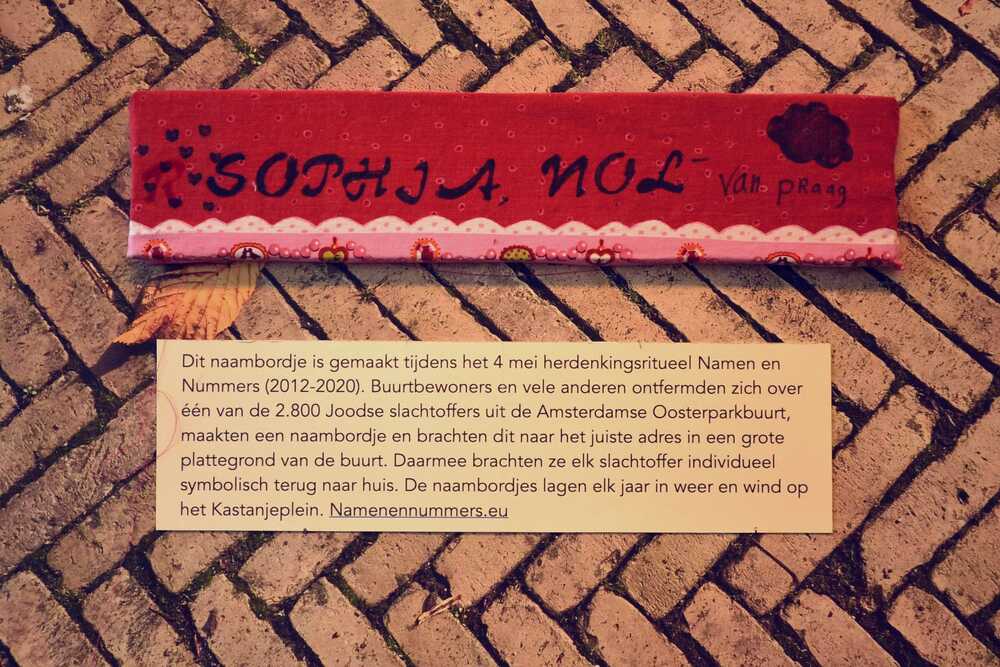 SOPHIA, NOL - van pRaag
Dit naambordje is gemaakt tijdens het 4 mei herdenkingsritueel Namen en
Nummers (2012-2020). Buurtbewoners en vele anderen ontfermden zich over
één van de 2.800 Joodse slachtoffers uit de Amsterdamse Oosterparkbuurt,
maakten een naambordje en brachten dit naar het juiste adres in een grote
plattegrond van de buurt. Daarmee brachten ze elk slachtoffer individueel
symbolisch terug naar huis. De naambordjes lagen elk jaar in weer en wind op
het Kastanjeplein. Namenennummers.eu